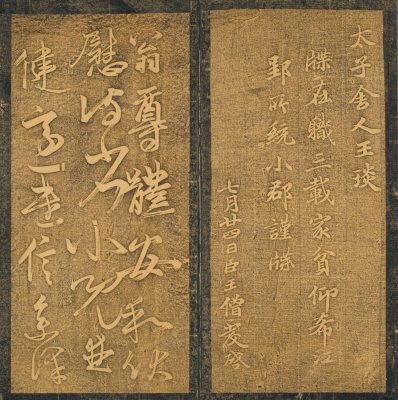 太子舍人王琰
牒在職三載家貧仰希江
郢所統小郡謹牒
七月廿四日臣王僧虔啓
翁尊體安和伏
慰侍小兒並
健適遣信